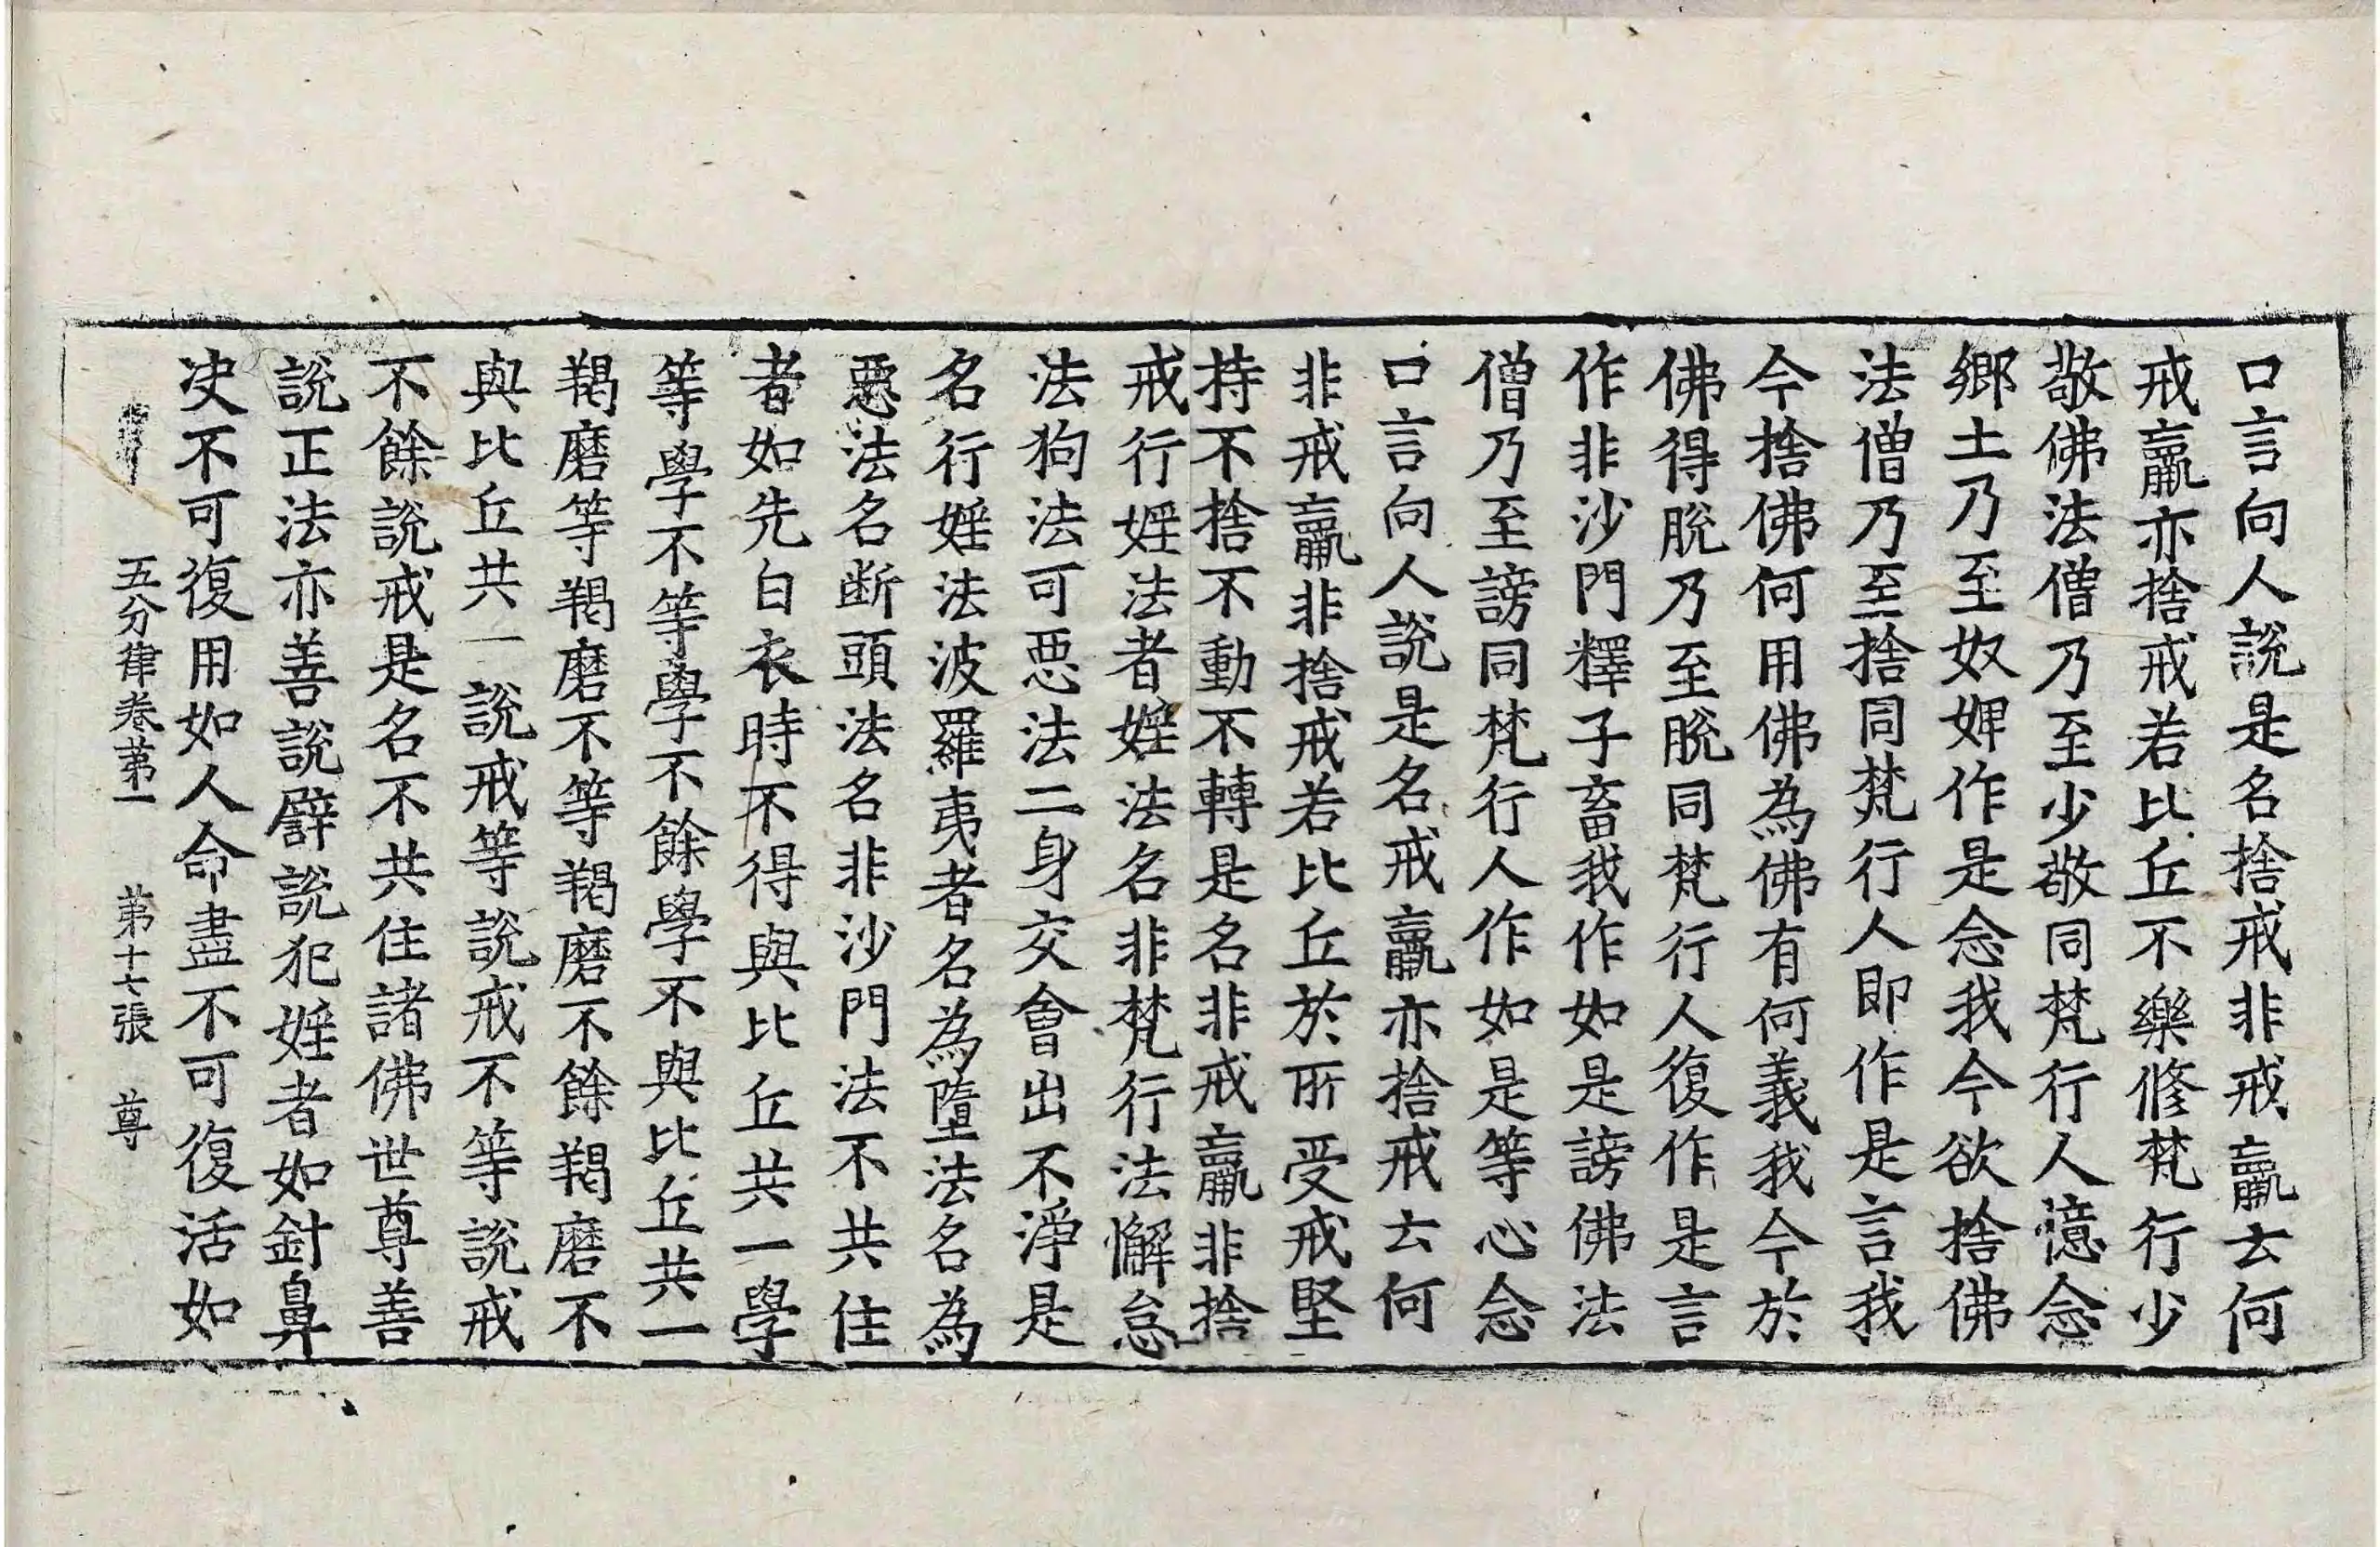 口言向人說是名捨戒非戒羸去何
戒羸亦捨戒若比丘不樂修梵行少
敬佛法僧乃至少敬同梵行人憶念
鄉土乃至奴婢作是念我今欲捨佛
法僧乃至捨同梵行人即作是言我
今捨佛何用佛為佛有何義我今於
佛得脫乃至脫同梵行人復作是言
作非沙門釋子畜我作如是謗佛法
僧乃至謗同梵行人作如是等心念
口言向人說是名戒羸亦捨戒去何
非戒羸非捨戒若比丘於所受戒堅
持不捨不動不轉是名非戒羸非捨
戒行婬法者婬法名非梵行法懈怠
法狗法可惡法二身交會出不淨是
名行婬法波羅夷者名為墮法名為
惡法名斷頭法名非沙門法不共住
者如先白衣時不得與比丘共一學
等學不等學不餘學不與比丘共一
羯磨等羯磨不等羯磨不餘羯磨不
與比丘共一說戒等說戒不等說戒
不餘說戒是名不共住諸佛世尊善
說正法亦善說譬說犯婬者如針鼻
决不可復用如人命盡不可復活如
五分律卷第一 第十七張 尊